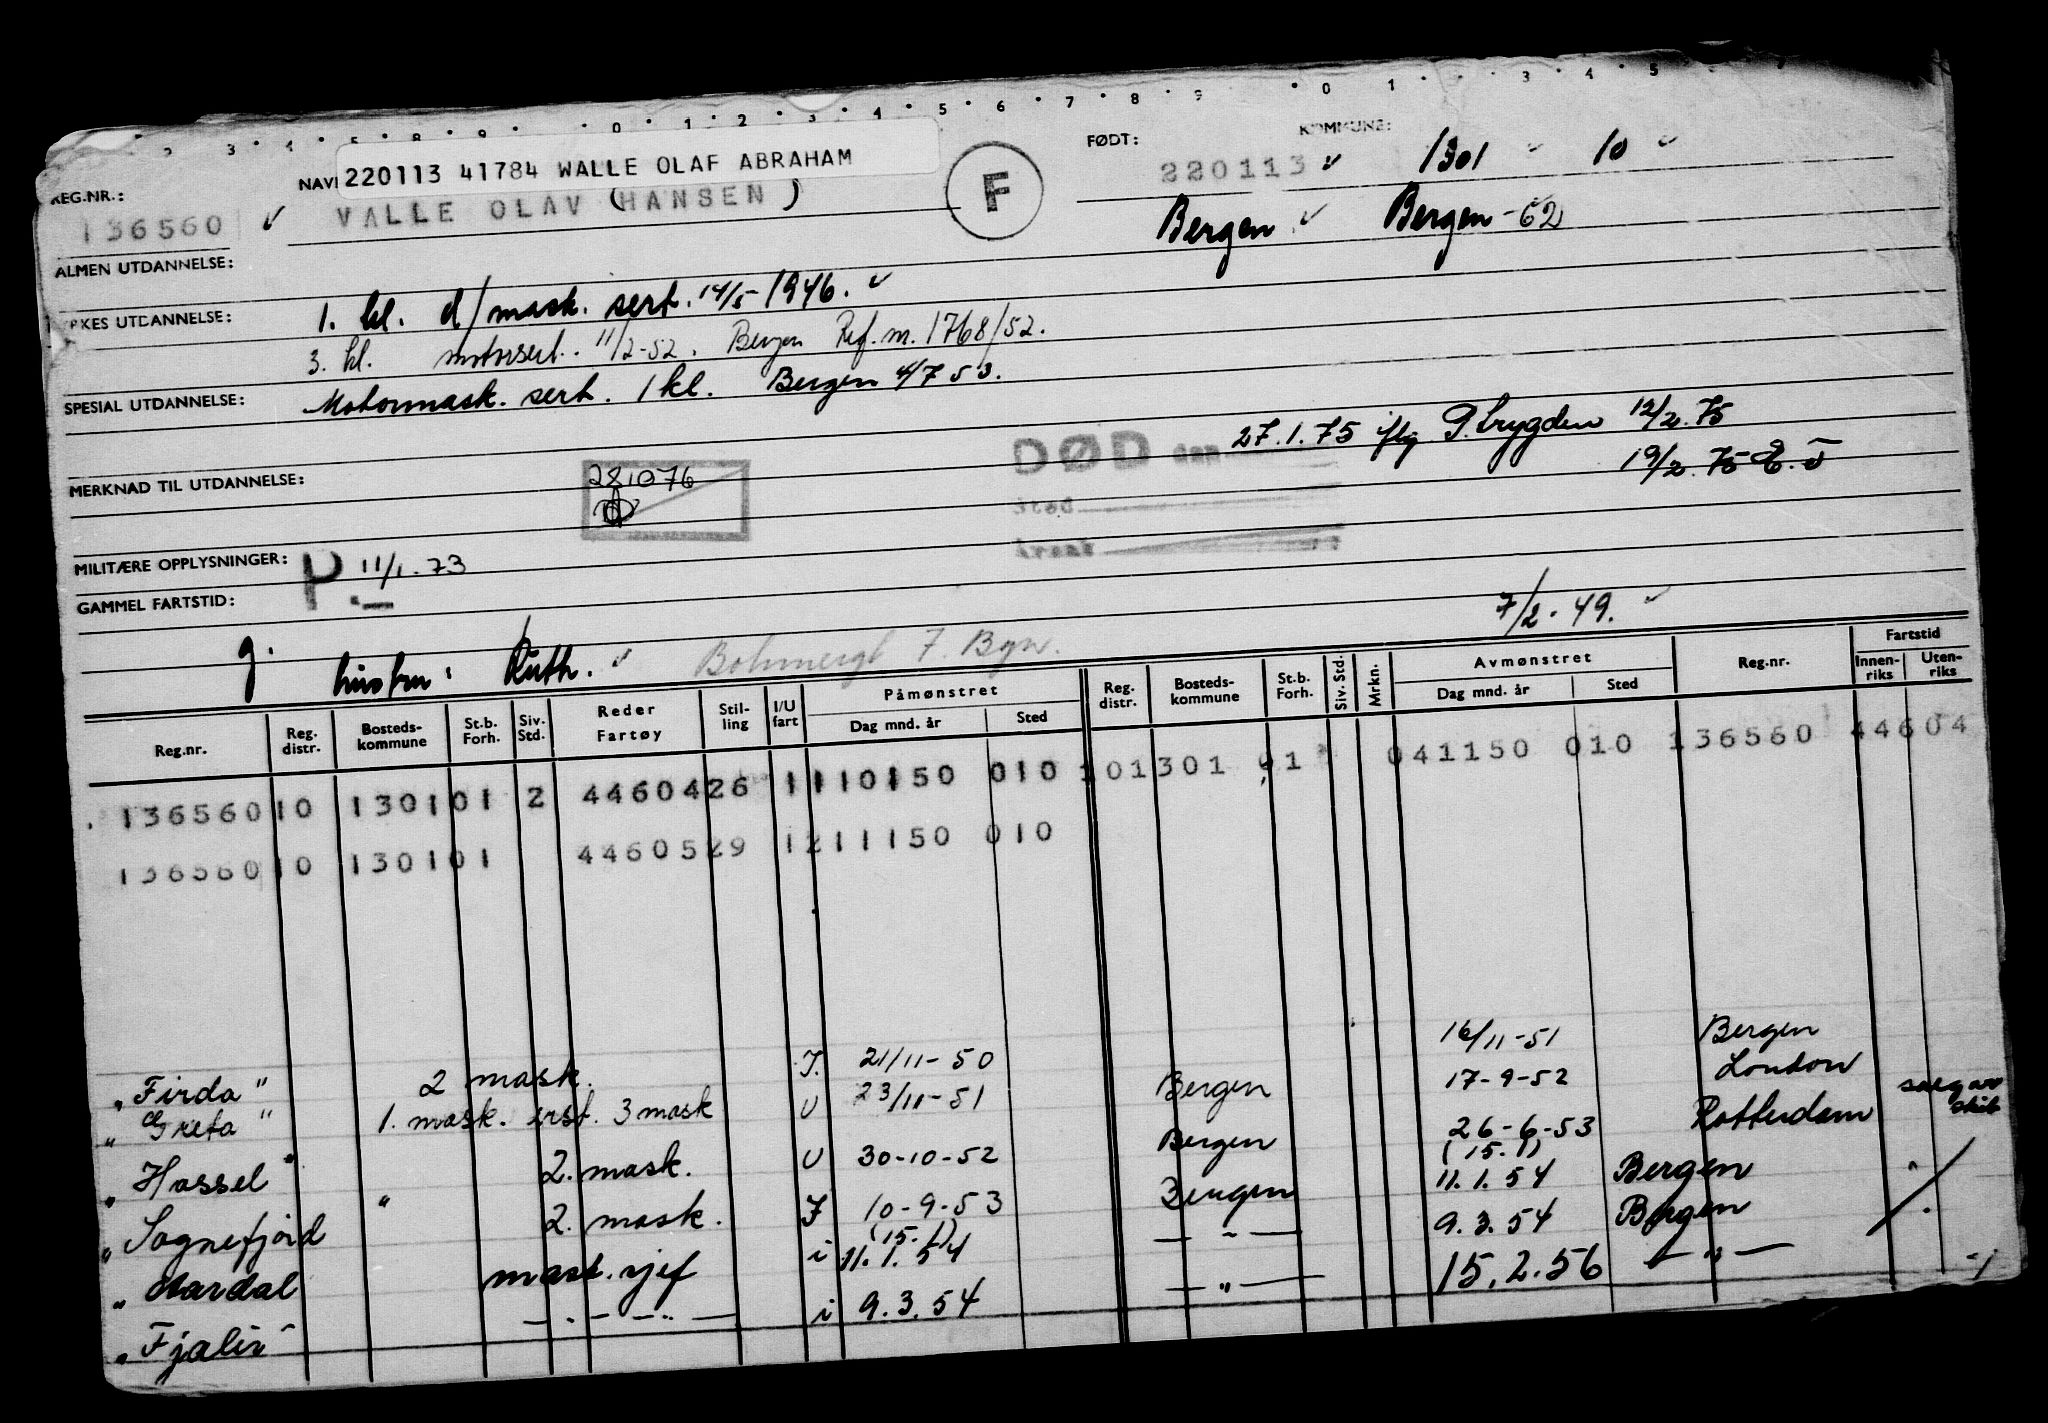 220113 41784 WALLE OLAF ABRAHAM
REG.NR.: NAV FØDT: KOMMUNE:
136560 VALLE OLAV (HANSEN) F 220113 1301 10
Bergen Bergen -62
ALMEN UTDANNELSE:
YRKES UTDANNELSE: 1. kl. d/mask. sert. 14/5-1946.
3. kl. motorsert. 11/2-52. Bergen Ref. m. 1768/52.
SPESIAL UTDANNELSE: Motormask. sert. 1 kl. Bergen 4/7 53.
DØD den 27.1.75 iflg P.trygden 12/2.75
19/2.75
MERKNAD TIL UTDANNELSE: 281076
Sted
Årsak
MILITÆRE OPPLYSNINGER: P. 11/1.73
GAMMEL FARTSTID:
7/2-49.
g. hustru: Ruth. 7. Bgn.
Reg.nr. Reg. distr. Bosteds-kommune St.b. Forh. Siv. Std. Reder Fartøy Stil-ling I/U fart Påmønstret Dag mnd. år Sted Reg. distr. Bosteds-kommune St.b. Forh. Siv. Std. Mrkn. Avmønstret Dag mnd. år Sted Reg.nr. Fartstid Innen-riks Uten-riks
136560 10 1301 01 2 4460426 1 110150 010 101301 01 041150 010 136560 44604
136560 10 1301 01 4460529 1 211150 010
"Firda" 2 mask. I. 21/11-50 16/11-51 Bergen
"Greta" 1. mask. erst. 3 mask U 23/11-51 Bergen 17-9-52 London
"Hassel" 2. mask. U 30-10-52 Bergen 26-6-53 Rotterdam salg av skib
"Sognefjord" 2. mask. I 10-9-53 Bergen (15.1) 11.1.54 Bergen
"Aardal mask.sjef i (15.1) 11.1.54 — " — 9.3.54 Bergen
"Fjalir" — " — " — i 9.3.54 — " — 15.2.56 — " —